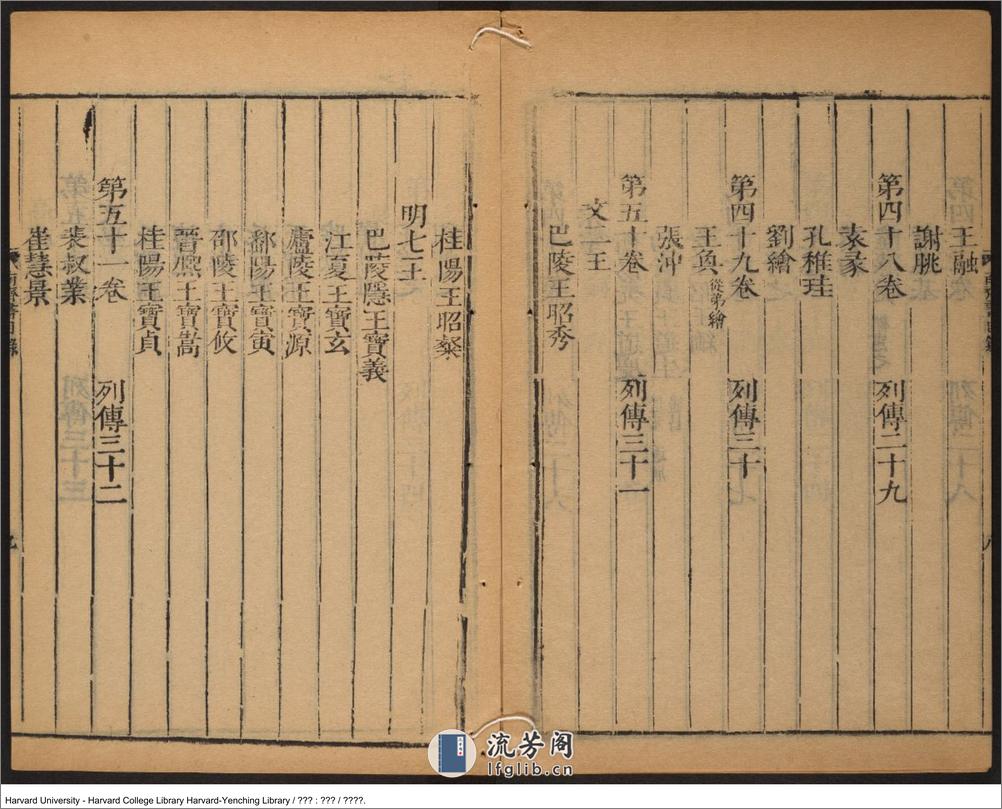 王融
謝朓
第四十八卷 列傳二十九
袁彖
孔稚珪
劉繪
第四十九卷 列傳三十
王奐 從弟繢
張沖
第五十卷 列傳三十一
文二王
巴陵王昭秀
桂陽王昭粲
明七王
巴陵隱王寶義
江夏王寶玄
廬陵王寶源
鄱陽王寶寅
邵陵王寶攸
晉熙王寶嵩
桂陽王寶貞
第五十一卷 列傳三十二
裴叔業
崔慧景
流芳阁
lfglib.cn
Harvard University - Harvard College Library Harvard-Yenching Library / ??? : ??? / ????.